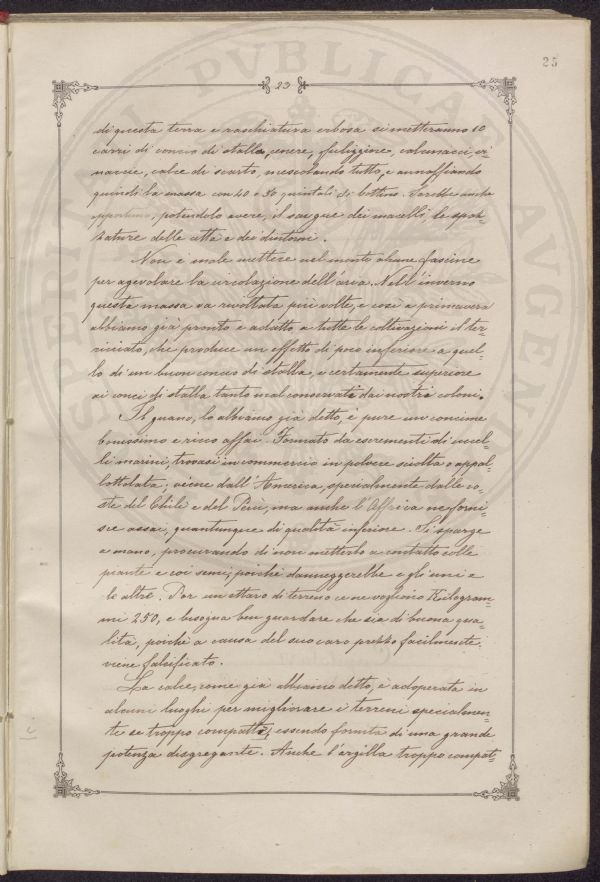 25
23
di questa terra e raschiatura erbosa si metteranno 10
carri di concio di stalla, cenere, fuliggine, calcinacci, vi-
nacce, calce di scarto, mescolando tutto, e annaffiando
quindi la massa con 40 o 50 quintali di bottino. Sarebbe anche
opportuno, potendolo avere, il sangue dei macelli, le spaz-
zature delle città e dei dintorni.
Non è male mettere nel monte alcune fascine
per agevolare la circolazione dell'aria. Nell'inverno
questa massa va rivoltata più volte, e così a primavera
abbiamo già pronto e adatto a tutte le coltivazioni il ter-
ricciato, che produce un effetto di poco inferiore a quel-
lo di un buon concio di stalla, e certamente superiore
ai conci di stalla tanto mal conservati dai nostri coloni.
Il guano, lo abbiamo già detto, è pure un concime
buonissimo e ricco assai. Formato da escrementi di uccel-
li marini, trovasi in commercio in polvere sciolta o appal-
lottolata, viene dall'America, specialmente dalle co-
ste del Chilì e del Perù, ma anche l'Affrica ne forni-
sce assai, quantunque di qualità inferiore. Si sparge
a mano, procurando di non metterlo a contatto colle
piante e coi semi, poiché danneggerebbe e gli uni e
le altre. Per un ettaro di terreno ce ne vogliono Kilogram-
mi 250, e bisogna ben guardare che sia di buona qua-
lità, poiché a causa del suo caro prezzo facilmente
viene falsificato.
La calce, come già abbiamo detto, è adoperata in
alcuni luoghi per migliorare i terreni specialmen-
te se troppo compatti, essendo fornita di una grande
potenza disgregante. Anche l'argilla troppo compat-